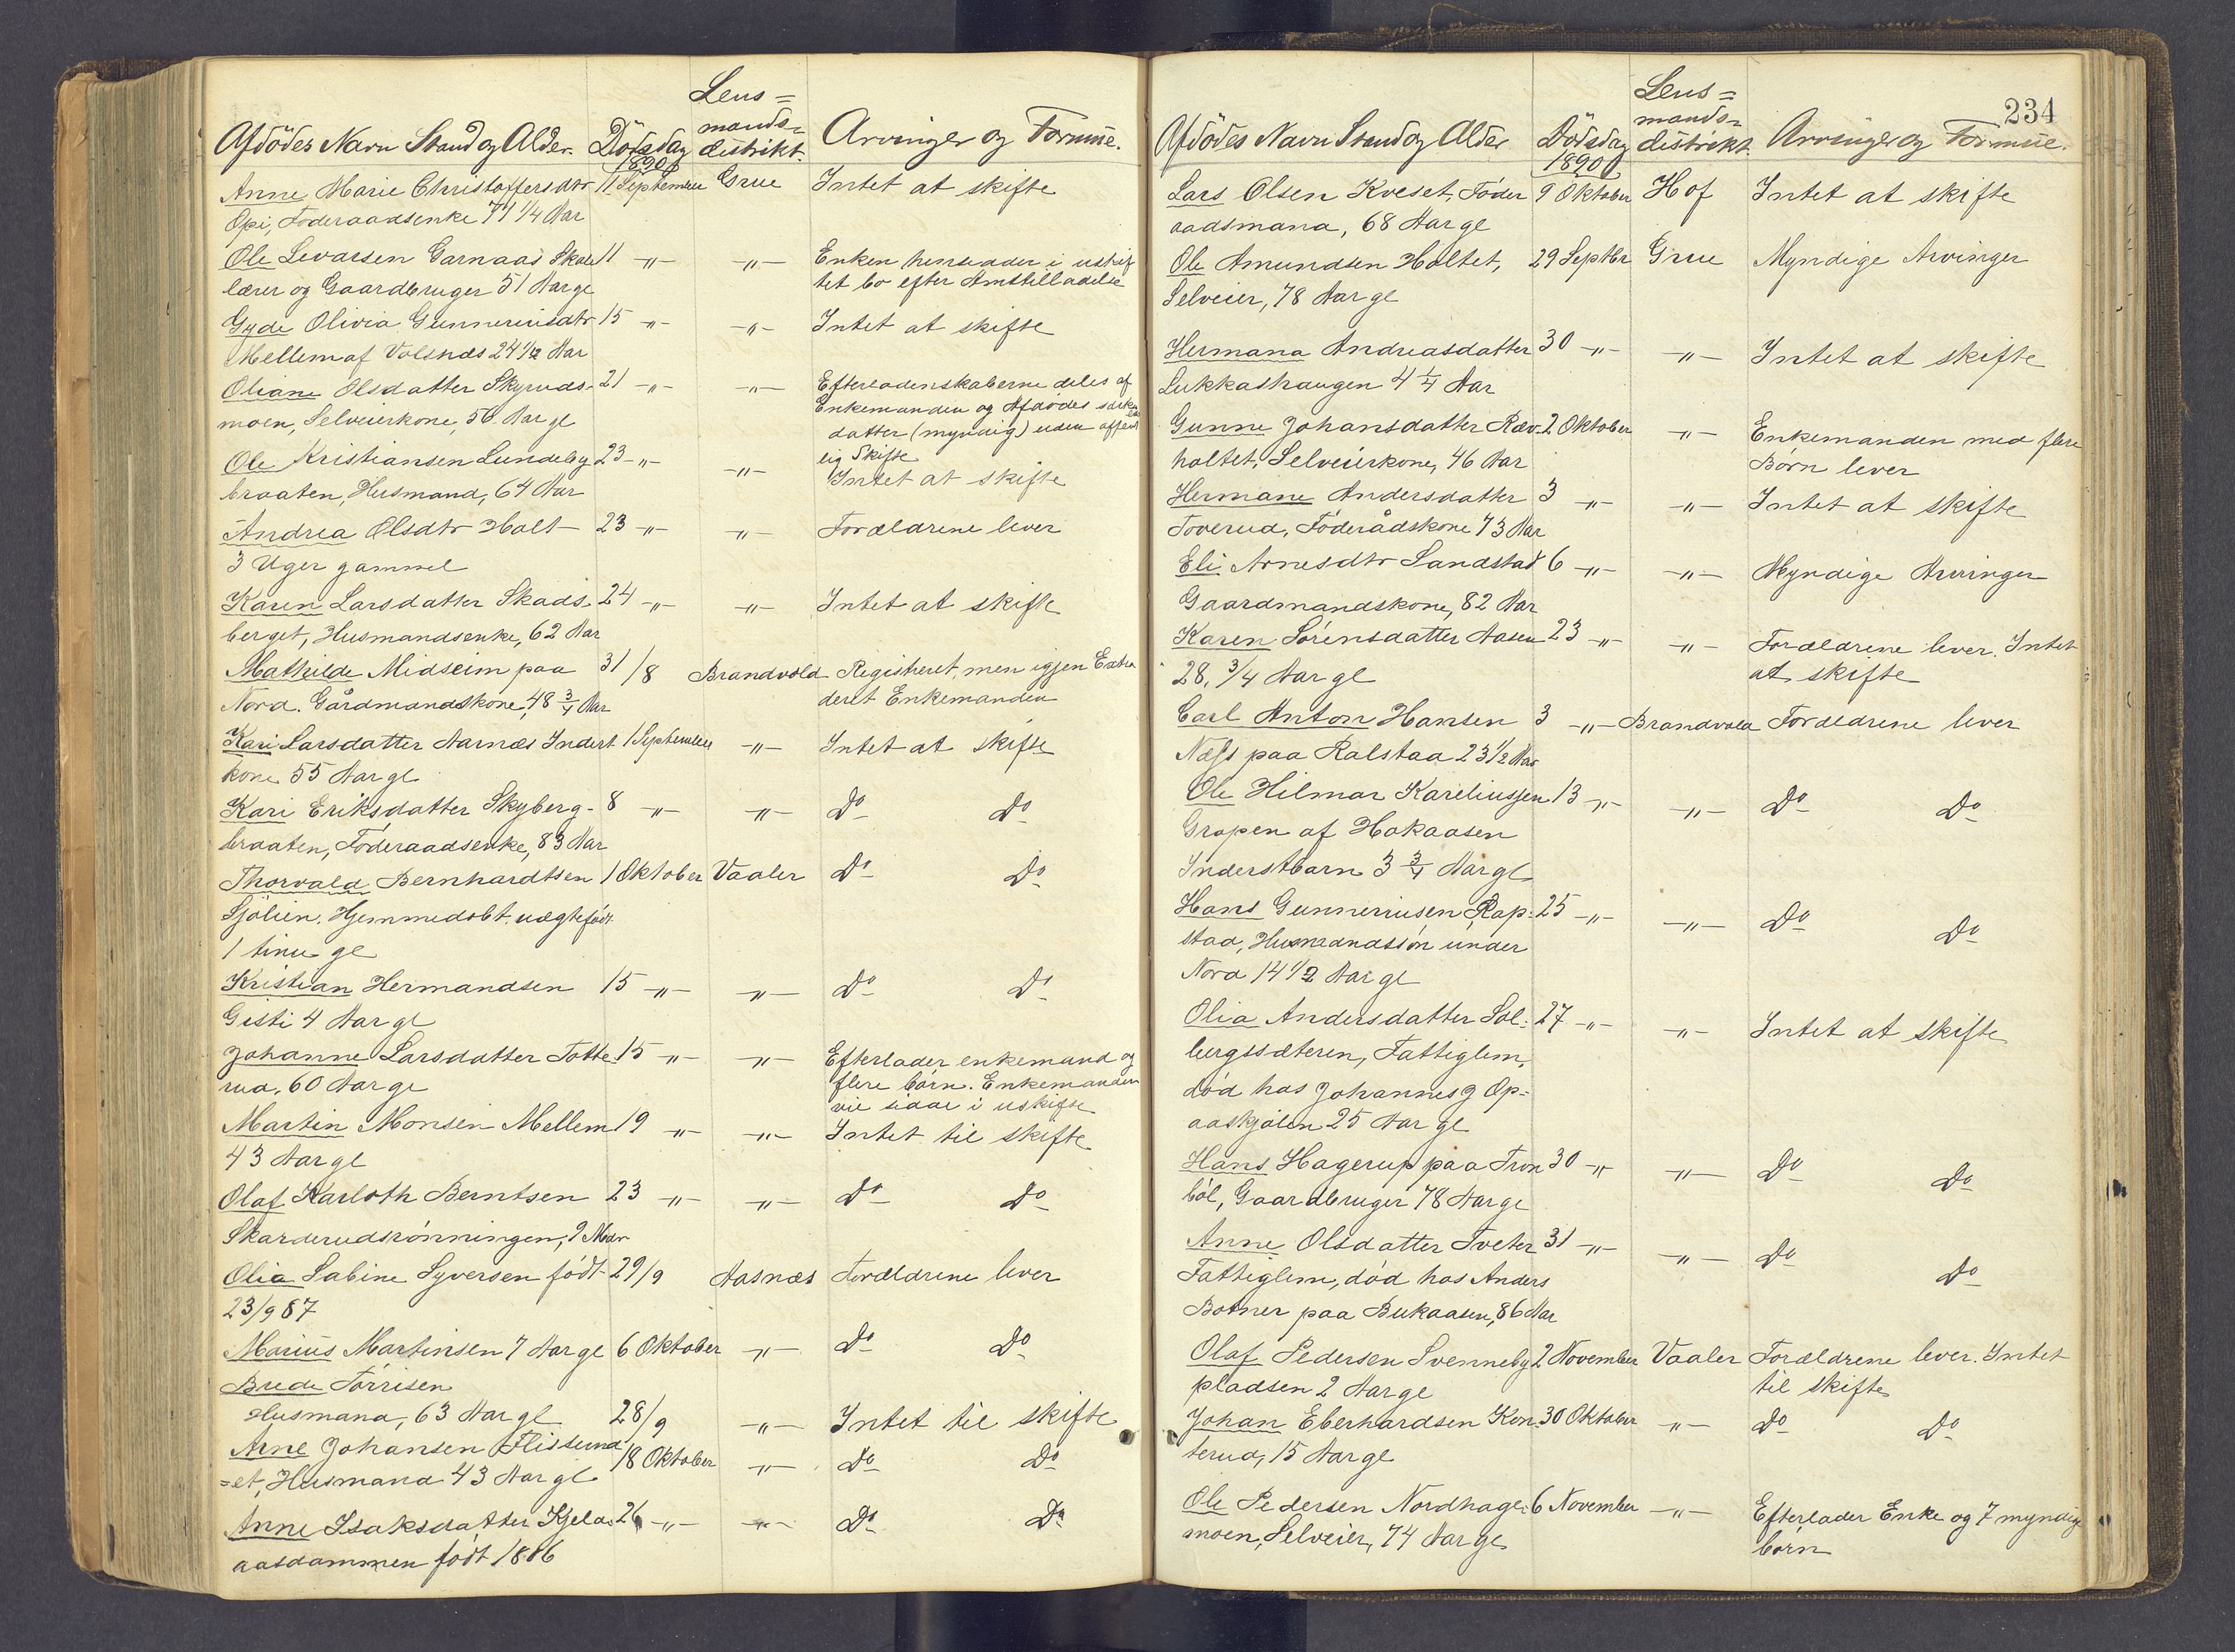 Lens=
mands=
Afdödes Navn Stand og Alder. Dödsdag distrikt. Arvinger og Formue.
1890
Anne Marie Christoffersdtr 11 September Grue Intet at skifte
Opi, Föderaadsenke 71 1/4 Aar
Ole Levarsen Garnaas Skole 11 -"- -"- Enken hensidder i uskif
lærer og Gaardbruger 51 Aar gl tet bo efter Amtstilladelse
Gyde Olivia Gunneriusdtr 15 -"- -"- Intet at skifte
Mellem af Volsnæs 24 1/2 Aar
Oliane Olsdatter Skyruds- 21 -"- -"- Efterladenskaberne deles af
moen, Selveierkone, 56 Aar gl Enkemanden og Afdödes
datter (myndig) uden offent
Ole Kristiansen Lundeby 23 -"- -"- lig Skifte
braaten, Husmand, 64 Aar Intet at skifte
Andrea Olsdtr Holt 23 -"- -"- Forældrene lever
3 Uger gammel
Karen Larsdatter Skads- 24 -"- -"- Intet at skifte
berget, Husmandsenke, 62 Aar
Mathilde Midseim paa 31/8 Brandvold Registreret, men igjen Extra
Nord. Gårdmandskone, 48 3/4 Aar deret Enkemanden
Kari Larsdatter Aarnæs Inderst 1 September -"- Intet at skifte
kone 55 Aar gl
Kari Eriksdatter Skyberg- 8 -"- -"- Do Do
braaten, Föderaadsenke, 83 Aar
Thorvald Bernhardtsen 1 Oktober Vaaler Do Do
Sjölien. Hjemmedöbt. uægtefödt
1 time gl
Kristian Hermandsen 15 -"- -"- Do Do
Gisti 4 Aar gl
Johanne Larsdatter Totte 15 -"- -"- Efterlader enkemand og
rud, 60 Aar gl flere börn. Enkemanden
vil sidde i uskifte
Martin Monsen Mellem 19 -"- -"- Intet til skifte
43 Aar gl
Olaf Karloth Berntsen 23 -"- -"- Do Do
Skarderudsrönningen, 9 Mdr
Olia Sabine Syversen födt 29/9 Aasnæs Forældrene lever
23/9 87
Marius Martinsen 7 Aar gl 6 Oktober -"- Do Do
Brede Torrisen
Husmand, 63 Aar gl 28/9 -"- Intet til skifte
Arne Johansen Flissund 18 Oktober -"- Do Do
=et, Husmand 43 Aar gl
Anne Isaksdatter Kjela- 26 -"- -"- Do Do
aasdammen födt 1806
234
Lens=
mands=
Afdödes Navn Stand og Alder Dödsdag distrikt. Arvinger og Formue.
1890
Lars Olsen Kveset, Föder 9 Oktober Hof Intet at skifte
aadsmand, 68 Aar gl
Ole Amundsen Holtet, 29 Septbr Grue Myndige Arvinger
Selveier, 78 Aar gl
Hermana Andreasdatter 30 -"- -"- Intet at skifte
Lukkashaugen 4 1/4 Aar
Gunne Johansdatter Ræv- 2 Oktober -"- Enkemanden med flere
holtet, Selveierkone, 46 Aar Börn lever
Hermane Andersdatter 3 -"- -"- Intet at skifte
Toverud, Föderådskone 73 Aar
Eli Arnesdtr Sandstad 6 -"- -"- Myndige Arvinger
Gaardmandskone, 82 Aar
Karen Sörensdatter Aasen 23 -"- -"- Forældrene lever. Intet
28 3/4 Aar gl at skifte
Carl Anton Hansen 3 -"- Brandvold Forældrene lever
Næss paa Ralstaa 23 1/2 Aar
Ole Hilmar Kareliussen 13 -"- -"- Do Do
Gropen af Hokaasen
Inderstbarn 3 3/4 Aar gl
Hans Gunneriusen Rap- 25 -"- -"- Do Do
stad, Husmandssön under
Nord 14 1/2 Aar gl
Olia Andersdatter Sol- 27 -"- -"- Intet at skifte
bergssæteren, Fattiglem,
död hos Johannes J Op-
aaskjölen 25 Aar gl
Hans Hagerup paa Tron 30 -"- -"- Do Do
böl, Gaardbruger 78 Aar gl
Anne Olsdatter Tveter 31 -"- -"- Do Do
Fattiglem, död hos Anders
Botner paa Bukaasen, 86 Aar
Olaf Pedersen Svenneby 2 November Vaaler Forældrene lever. Intet
pladsen 2 Aar gl til skifte
Johan Eberhardsen Kon- 30 Oktober -"- Do Do
terud, 15 Aar gl
Ole Pedersen Nordhage- 6 November -"- Efterlader Enke og 7 myndige
moen, Selveier, 74 Aar gl börn